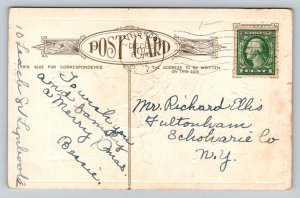 POST CARD
SIDE FOR CORRESPONDENCE
THE ADDRESS TO BE WRITTEN
ON THIS SIDE
To wish you
and family
a Merry Xmas.
Bessie.
Mr. Richard Ellis
Fultonham
Schoharie Co
N.Y.
1 CENT 1
10
St